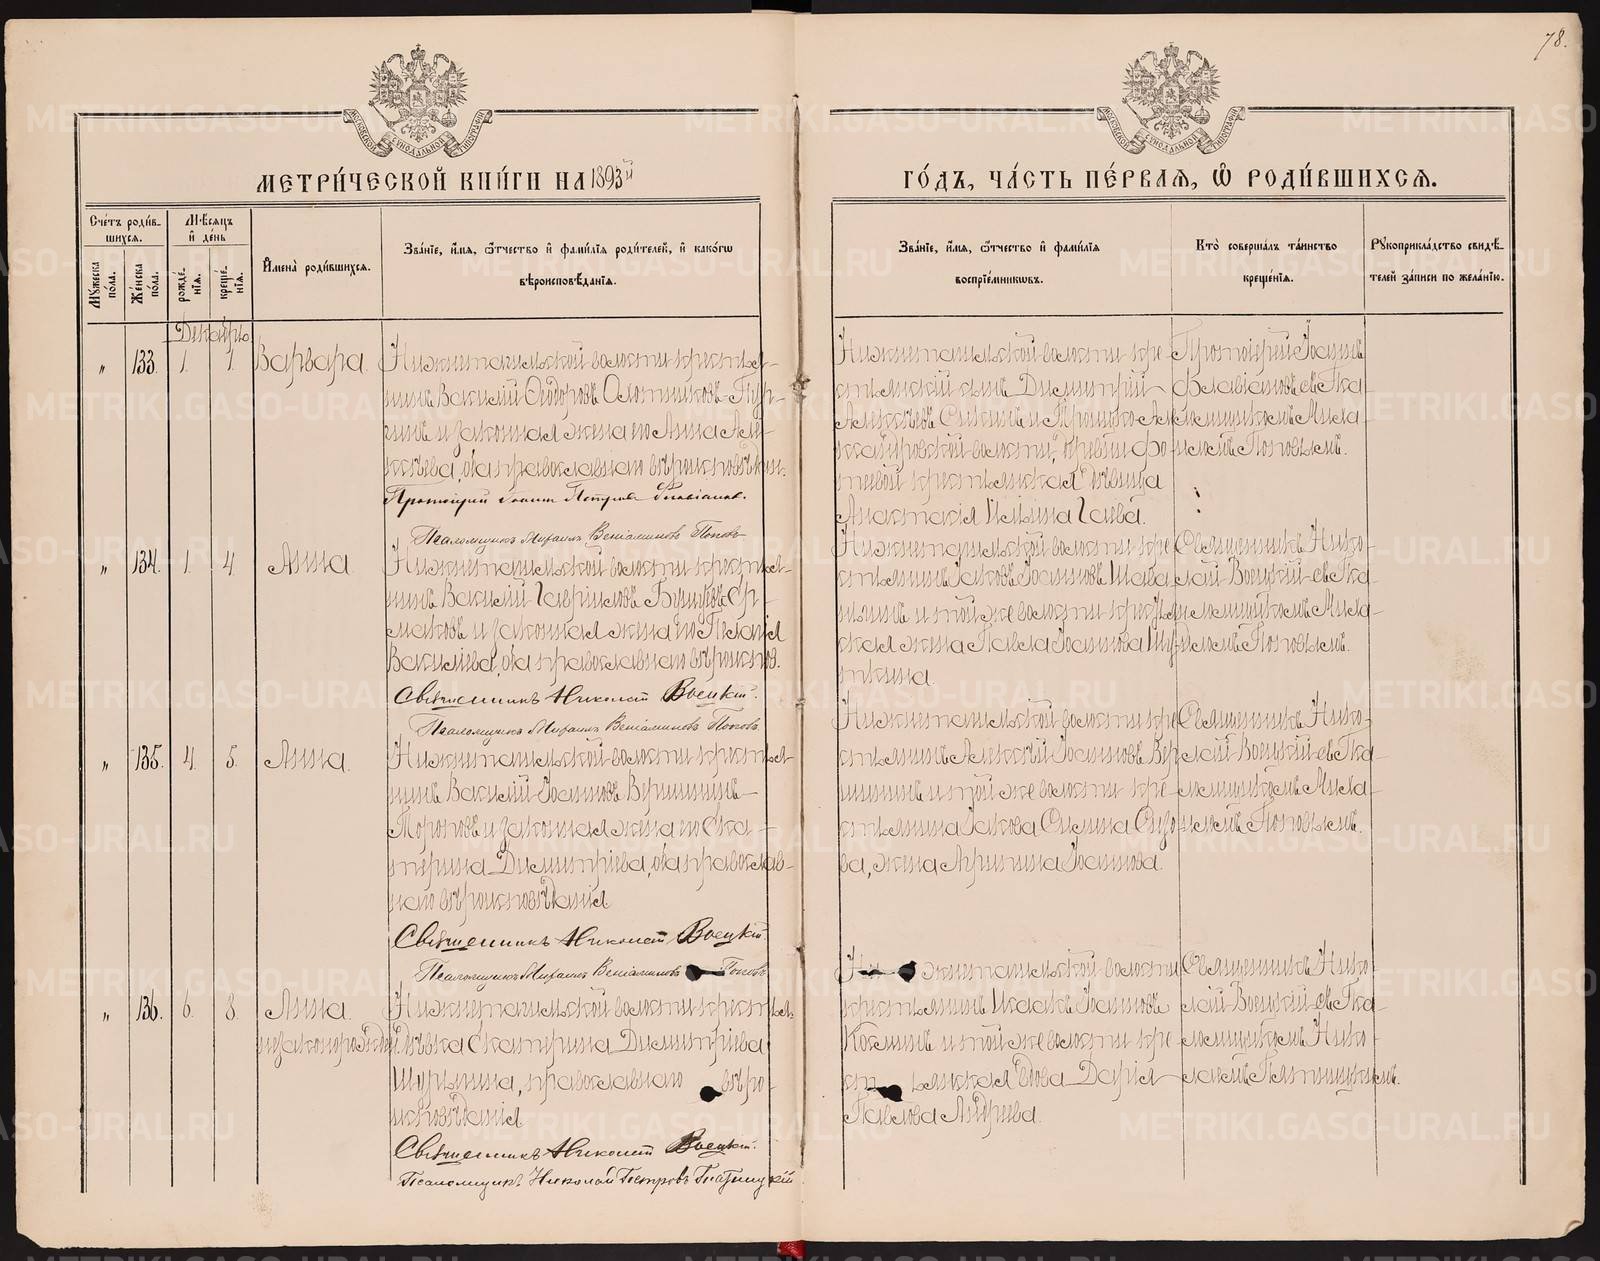 78.
МЕТРИ́ЧЕСКОЙ КНИ́ГИ НА 1893й
ГО́ДЪ, ЧА́СТЬ ПЕ́РВАЯ, Ѡ РОДИ́ВШИХСЯ.
Сче́тъ роди́в-
шихся.
Мужеска по́ла.
Же́нска по́ла.
Мѣ́сяцъ и де́нь
рожде́-
нїя.
креще́-
нїя.
И҆мена̀ роди́вшихся.
Зва́нїе, и҆́мя, ѻ҆́тчество и҆ фами́лїя роди́телей, и҆ како́гѡ
вѣроисповѣ́данїя.
Зва́нїе, и҆́мя, ѻ҆́тчество и҆ фами́лїя
воспрїе́мниковъ.
Кто̀ соверша́лъ та́инство
креще́нїя.
Рукоприкла́дство свидѣ́-
телей за́писи по жела́нїю.
Декабрь
" 133. 1. 1. Варвара.
Нижнетагильской волости крестья-
нинъ Василій Ѳеодоровъ
и законная жена его Анна Але-
ксѣева, оба православнаго вѣроисповѣдан.
Протоіерей Іоаннъ Петровъ Флавіановъ.
Псаломщикъ Михаилъ Веніаминовъ Поповъ
Нижнетагильской волости кре-
стьянскій сынъ Димитрій
Алексѣевъ и Троицко-Але-
ксандровской волости,
крестьянская дѣвица
Анастасія Ильина
Протоіерей Іоаннъ
Флавіановъ съ Пса-
ломщикомъ Миха-
иломъ Поповымъ.
" 134. 1. 4. Анна.
Нижнетагильской волости крестья-
нинъ Василій Гавриловъ Ер-
маковъ и законная жена его Пелагія
Васильева, оба православнаго вѣроисповѣд.
Священникъ Николай Воецкій.
Псаломщикъ Михаилъ Веніаминовъ Поповъ
Нижнетагильской волости кре-
стьянинъ Іаковъ Іоанновъ
и той же волости крестьян-
ская жена Павла Іоаннова
Священникъ Нико-
лай Воецкій съ Пса-
ломщикомъ Миха-
иломъ Поповымъ.
" 135. 4. 5. Анна.
Нижнетагильской волости крестья-
нинъ Василій Іоанновъ Вершининъ-
Тороповъ и законная жена его Ека-
терина Димитріева, оба православ-
наго вѣроисповѣданія
Священникъ Николай Воецкій.
Псаломщикъ Михаилъ Веніаминовъ Поповъ
Нижнетагильской волости кре-
стьянинъ Алексѣй Іоанновъ Вер-
шининъ и той же волости кре-
стьянина Іакова
ва, жена Іоаннова.
Священникъ Нико-
лай Воецкій съ Пса-
ломщикомъ Миха-
иломъ Поповымъ.
" 136. 6. 8. Анна.
незаконорожден.
Нижнетагильской волости крестья-
дѣвка Екатерина Димитріева
православнаго вѣро-
исповѣданія
Священникъ Николай Воецкій.
Псаломщикъ Николай Петровъ Пятницкій
Нижнетагильской волости
крестьянинъ Исаакъ Іоанновъ
и той же волости кре-
стьянская вдова Дарія
Павлова Андреева.
Священникъ Нико-
лай Воецкій съ Пса-
ломщикомъ Нико-
лаемъ Пятницкимъ.
METRIKI.GASO-URAL.RU